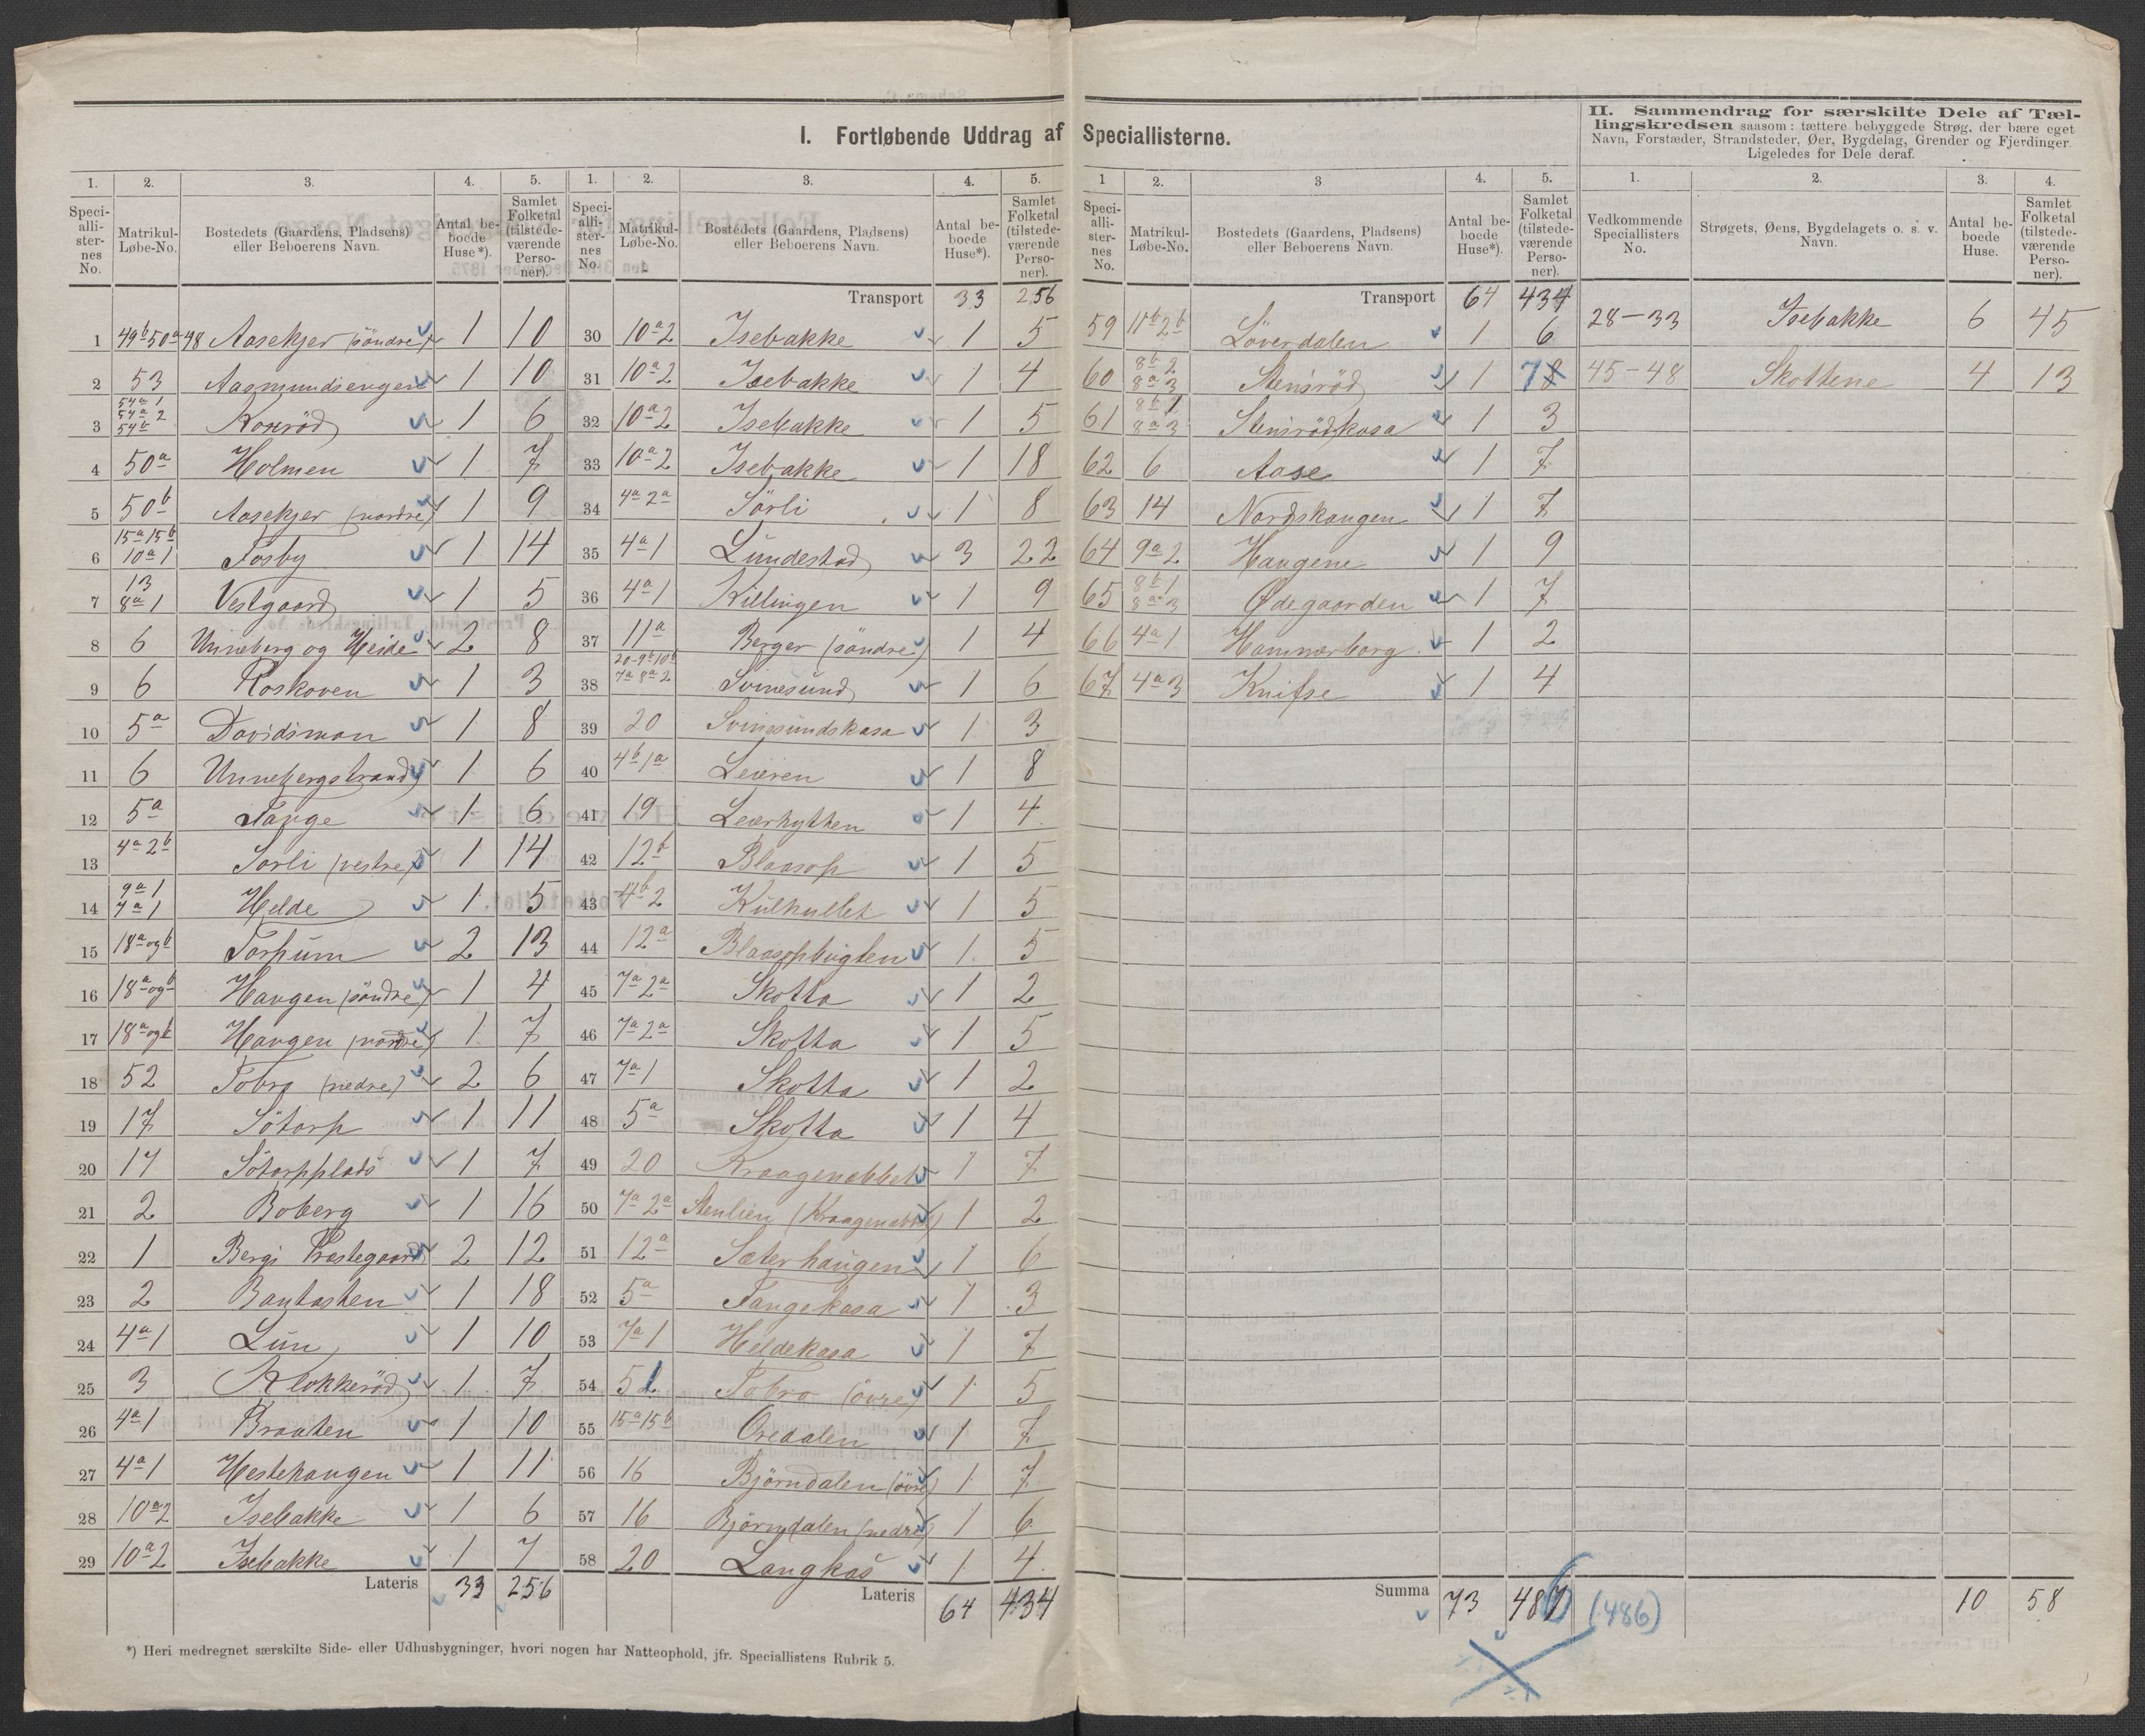 I. Fortløbende Uddrag af Speciallisterne.
II. Sammendrag for særskilte Dele af Tæl-
lingskredsen saasom: tættere bebyggede Strøg, der bære eget
Navn, Forstæder, Strandsteder, Øer, Bygdelag, Grender og Fjerdinger.
Ligeledes for Dele deraf.
1. 2. 3. 4. 5.
Speci-alli-ster-nes No. Matrikul-Løbe-No. Bostedets (Gaardens, Pladsens) eller Beboerens Navn. Antal be-boede Huse*). Samlet Folketal (tilstede-værende Perso-ner).
1 49b 50a 48 Aasekjer (söndre) 1 10
2 53 Aasmundsengen 1 10
3 54a 1 54a 2 54b Korsröd 1 6
4 50a Holmen 1 7
5 50b Aasekjer (nordre) 1 9
6 15a 15b 10a 1 Fosby 1 14
7 13 8a 1 Vestgaard 1 5
8 6 Unneberg og Heide 2 8
9 6 Roskoven 1 3
10 5a Davidsmon 1 8
11 6 Unnebergstrand 1 6
12 5a Tange 1 6
13 4a 2b Sorli (vestre) 1 14
14 9a 1 7a 1 Helde 1 5
15 18a og b Torpum 2 13
16 18a og b Haugen (söndre) 1 4
17 18a og b Haugen (nordre) 1 7
18 52 Tobro (nedre) 2 6
19 17 Sötorp 1 11
20 17 Sötorpplads 1 7
21 2 Boberg 1 16
22 1 Bergs Præstegaard 2 12
23 2 Bautasten 1 18
24 4a 1 Lun 1 10
25 3 Klokkeröd 1 7
26 4a 1 Braaten 1 10
27 4a 1 Hestehaugen 1 11
28 10a 2 Isebakke 1 6
29 10a 2 Isebakke 1 7
Lateris 33 256
1. 2. 3. 4. 5.
Speci-alli-ster-nes No. Matrikul-Løbe-No. Bostedets (Gaardens, Pladsens) eller Beboerens Navn. Antal be-boede Huse*). Samlet Folketal (tilstede-værende Perso-ner).
Transport 33 256
30 10a 2 Isebakke 1 5
31 10a 2 Isebakke 1 4
32 10a 2 Isebakke 1 5
33 10a 2 Isebakke 1 18
34 4a 2a Sörli 1 8
35 4a 1 Lundestad 3 22
36 4a 1 Killingen 1 9
37 11a Berger (söndre) 1 4
38 20-9b 10b 7a 8a 2 Svinesund 1 6
39 20 Svinesundskasa 1 3
40 4b 1a Leieren 1 8
41 19 Leerhytten 1 4
42 12b Blaasop 1 5
43 4b 2 Kulhullet 1 5
44 12a Blaasopbugten 1 5
45 7a 2a Skotta 1 2
46 7a 2a Skotta 1 5
47 7a 1 Skotta 1 2
48 5a Skotta 1 4
49 20 Kraagenebbet 1 7
50 7a 2a Stenlien (Kraagenebbet) 1 2
51 12a Sæterhaugen 1 6
52 5a Tangekasa 1 3
53 7a 1 Heldekasa 1 7
54 51 Tobro (övre) 1 5
55 15a 15b Oredalen 1 7
56 16 Björndalen (övre) 1 7
57 16 Björndalen (nedre) 1 6
58 20 Langkas 1 4
Lateris 64 434
*) Heri medregnet særskilte Side- eller Udhusbygninger, hvori nogen har Natteophold, jfr. Speciallistens Rubrik 5.
1 2. 3 4. 5.
Speci-alli-ster-nes No. Matrikul-Løbe-No. Bostedets (Gaardens, Pladsens) eller Beboerens Navn. Antal be-boede Huse*). Samlet Folketal (tilstede-værende Perso-ner).
Transport 64 434
59 11b 2b Löverdalen 1 6
60 8b 2 8a 3 Stensröd 1 7 8
61 8b 1 8a 3 Stensrödkasa 1 3
62 6 Aase 1 7
63 14 Nordskaugen 1 7
64 9a 2 Haugene 1 9
65 8b 1 8a 3 Ødegaarden 1 7
66 4a 1 Hammerborg 1 2
67 4a 3 Knifse 1 4
Summa 73 487 (486)
1. 2. 3. 4.
Vedkommende Speciallisters No. Strøgets, Øens, Bygdelagets o. s. v. Navn. Antal be-boede Huse. Samlet Folketal (tilstede-værende Perso-ner).
28-33 Isebakke 6 45
45-48 Skottene 4 13
10 58